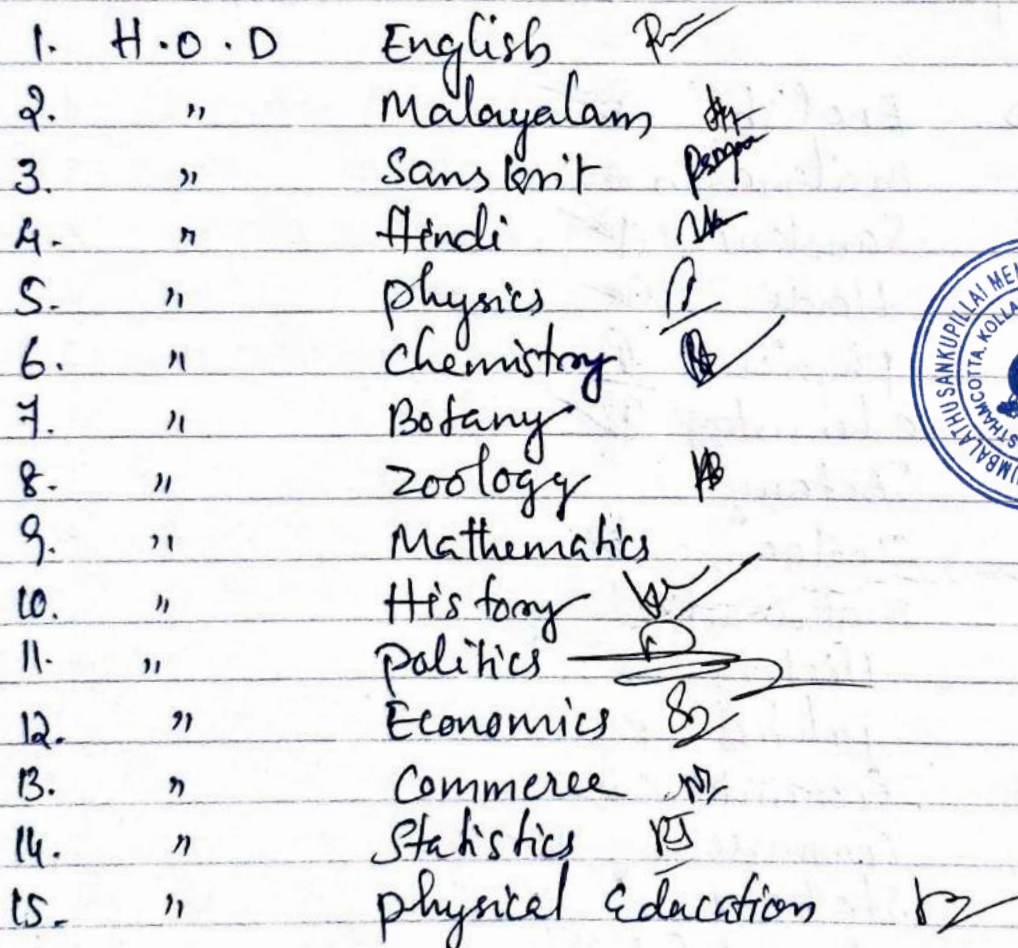 1. H.O.D English
2. " Malayalam
3. " Sanskrit
4. " Hindi
5. " physics
6. " chemistry
7. " Botany
8. " Zoology
9. " Mathematics
10. " History
11. " politics
12. " Economics
13. " Commerce
14. " Statistics
15. " physical Education
SANKUPILLAI
KOLLA